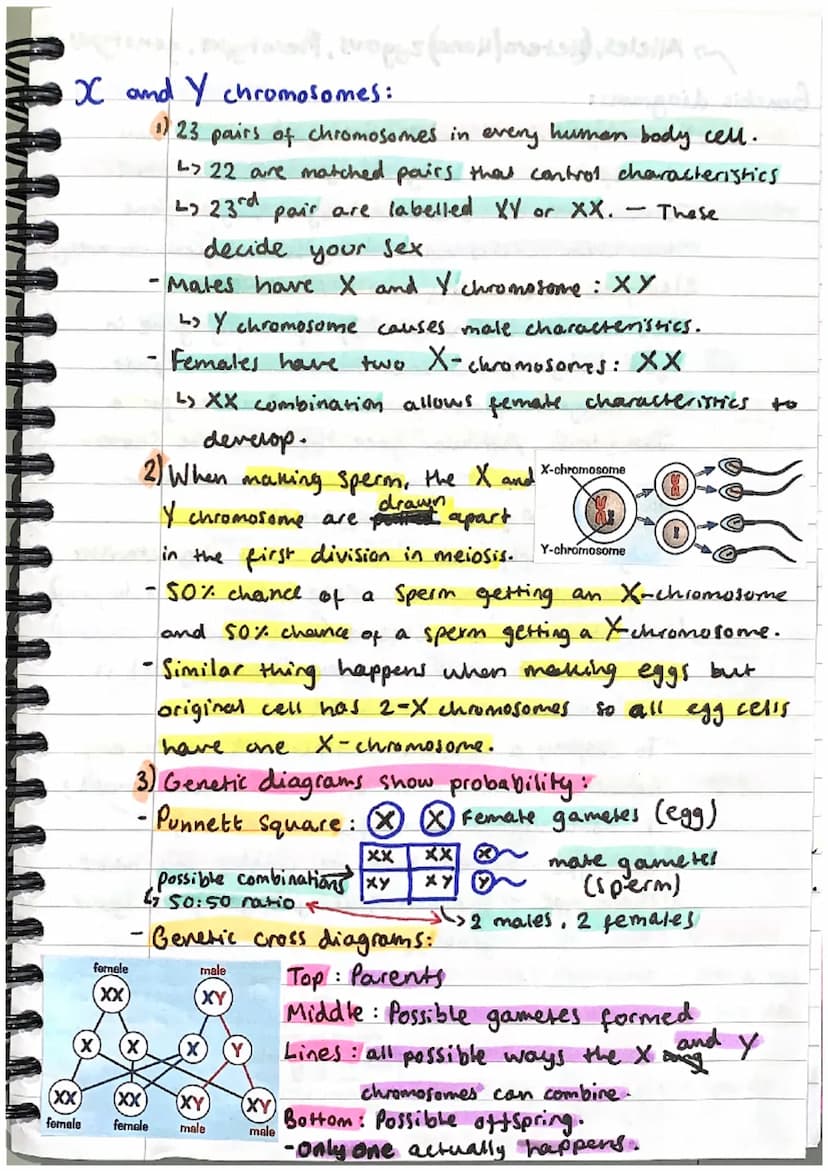 X and Y chromosomes:
1) 23 pairs of chromosomes in every human body cell.
↳ 22 are matched pairs that control characteristics
↳ 23rd pair are labelled XY or XX. — These
decide your sex
- Males have X and Y chromosome : XY
↳ Y chromosome causes male characteristics.
- Females have two X-chromosomes: XX
↳ XX combination allows female characteristics to
develop.
2) When making sperm, the X and
Y chromosome are drawn apart
in the first division in meiosis.
X-chromosome
Y-chromosome
- 50% chance of a sperm getting an X-chromosome
and 50% chance of a sperm getting a Y-chromosome.
- Similar thing happens when making eggs but
original cell has 2-X chromosomes so all egg cells
have one X-chromosome.
3) Genetic diagrams show probability:
- Punnett Square : X X Female gametes (egg)
XX XX X male gametes
possible combinations XY XY Y (sperm)
↳ 50:50 ratio ↳ 2 males, 2 females
- Genetic cross diagrams:
female male
XX XY
X X X Y
XX XX XY XY
female female male male
Top : Parents
Middle : Possible gametes formed
Lines : all possible ways the X and Y
chromosomes can combine.
Bottom : Possible offspring.
- only one actually happens.